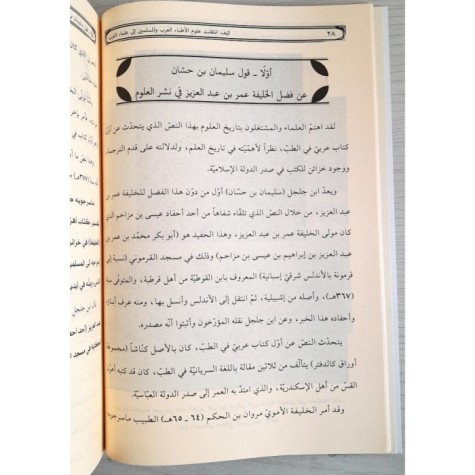 ٢٨
كيف انتقلت علوم الأطباء العرب والمسلمين إلى علماء الغرب
أوّلًا ـ قول سليمان بن حسّان
عن فضل الخليفة عمر بن عبد العزيز في نشر العلوم
لقد اهتمّ العلماء والمشتغلون بتاريخ العلوم بهذا النصّ الذي يتحدّث عن أوّل
كتاب عربيّ في الطبّ، نظراً لأهمّيّته في تاريخ العلم، ولدلالته على قدم الترجمة،
ووجود خزائن للكتب في صدر الدولة الإسلاميّة.
ويعدّ ابن جلجل (سليمان بن حسّان) أوّل من دوّن هذا الفضل للخليفة عمر
بن عبد العزيز، من خلال النصّ الذي تلقّاه شفاهاً من أحد أحفاد عيسى بن مزاحم الذي
كان مولى الخليفة عمر بن عبد العزيز، وهذا الحفيد هو (أبو بكر محمد بن عمر بن
عبد العزيز بن إبراهيم بن عيسى بن مزاحم)، وذلك في مسجد القرموني (نسبة إلى
قرمونة بالأندلس شرقيّ إسبانية) المعروف بابن القوطيّة من أهل قرطبة، والمتوفّى سنة
(٣٦٧هـ)، وأصله من إشبيلية، ثمّ انتقل إلى الأندلس وأنسل بها، ومنه عرف أبناؤه
وأحفاده هذا الخبر، وعن ابن جلجل نقله المؤرّخون وأثبتوا أنّه مصدره.
يتحدّث النصّ عن أوّل كتاب عربيّ في الطبّ، كان بالأصل كنّاشاً (مجموعة
أوراق كالدفتر) يتألّف من ثلاثين مقالة باللغة السريانيّة في الطبّ، كان قد كتبه أهرن
القسّ من أهل الإسكندريّة، والذي امتدّ به العمر إلى صدر الدولة العبّاسيّة.
وقد أمر الخليفة الأمويّ مروان بن الحكم (٦٤ ـ ٦٥هـ) الطبيب ماسرجويه